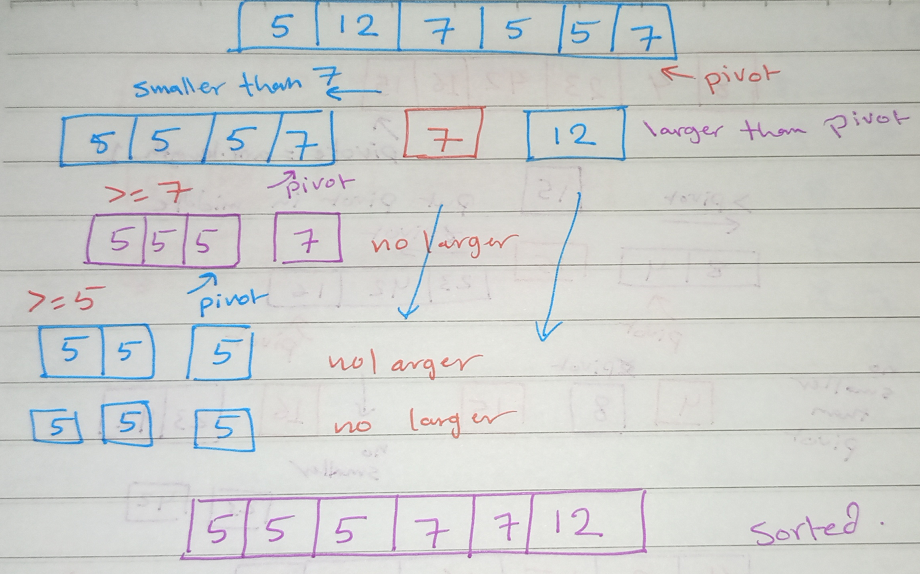 5 12 7 5 5 7
← pivot
smaller than 7 ←
5 5 5 7 7 12 larger than pivot
>= 7 pivot
5 5 5 7 no larger
>= 5 pivot
5 5 5 no larger
5 5 5 no larger
5 5 5 7 7 12 sorted.